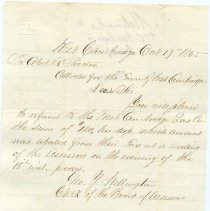 West Cambridge Oct 19th 1865
To Abel R. Proctor
Collector for the Town of West Cambridge
Dear Sir
You will please
to refund to the West Cambridge Gas Co
the Sum of $ dys which amount
was abated from their Tax at a meeting
of the Assessors on the evening of the
18th inst.
Geo. Y. Wellington
Clerk of the Board of Assessors